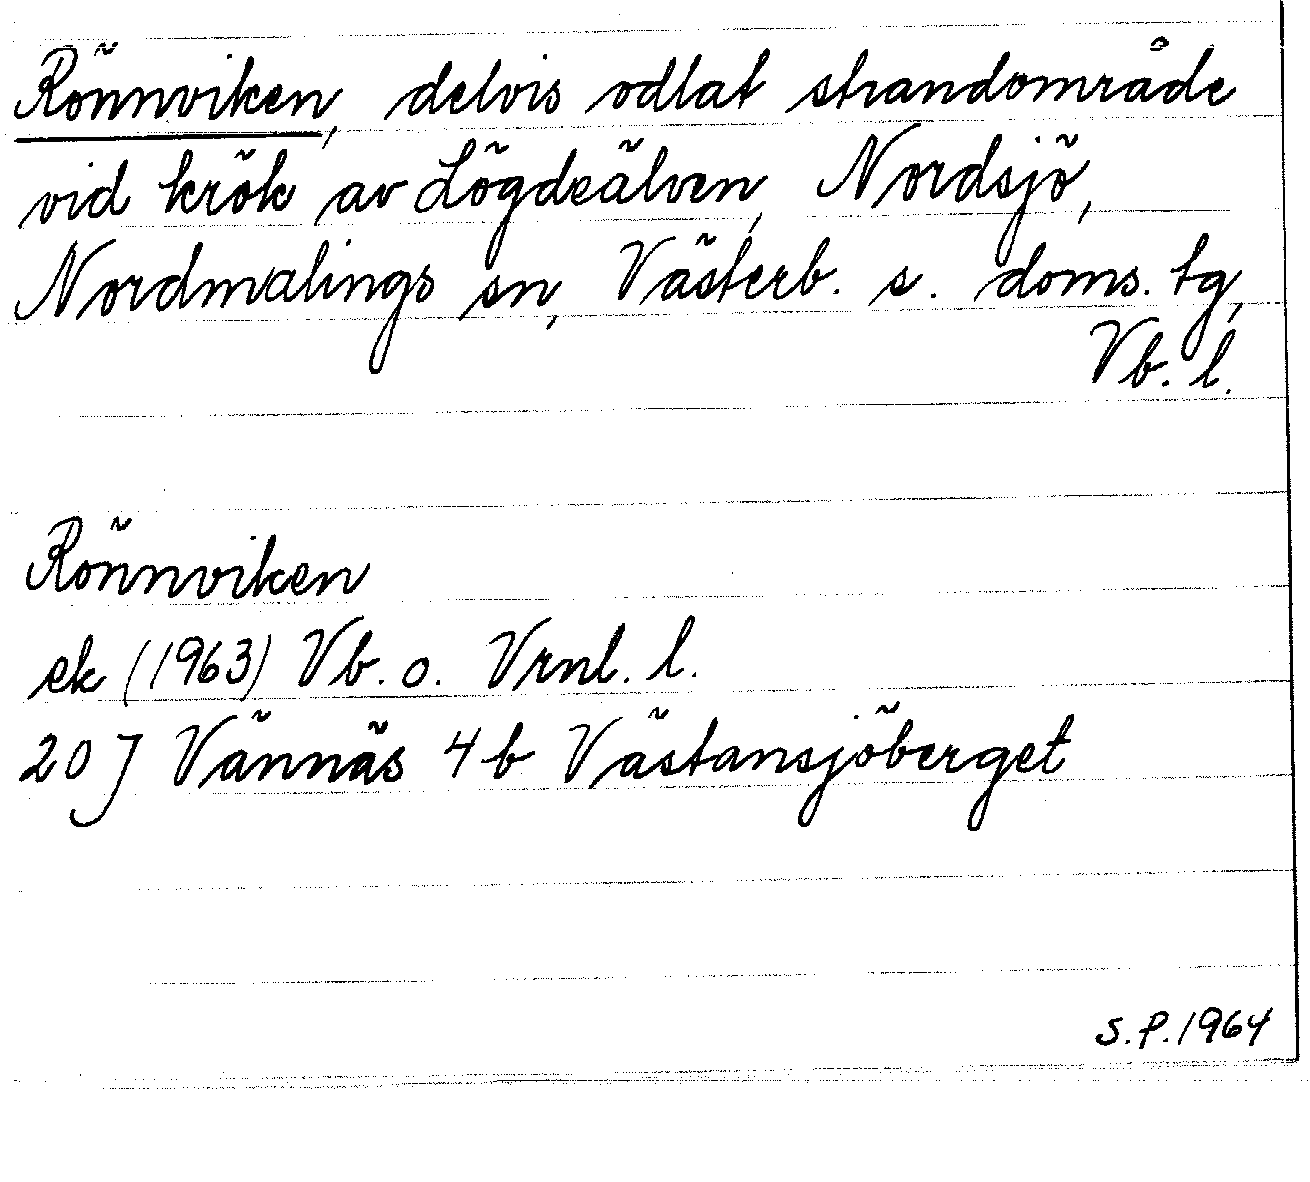 Rönnviken, delvis odlat strandområde
vid krök av Lögdeälven, Nordsjö,
Nordmalings sn, Västerb. s. doms. tg,
Vb. l.
Rönnviken
ek (1963) Vb. o. Vrnl. l.
20 J Vännäs 4 b Västansjöberget
S.P. 1964